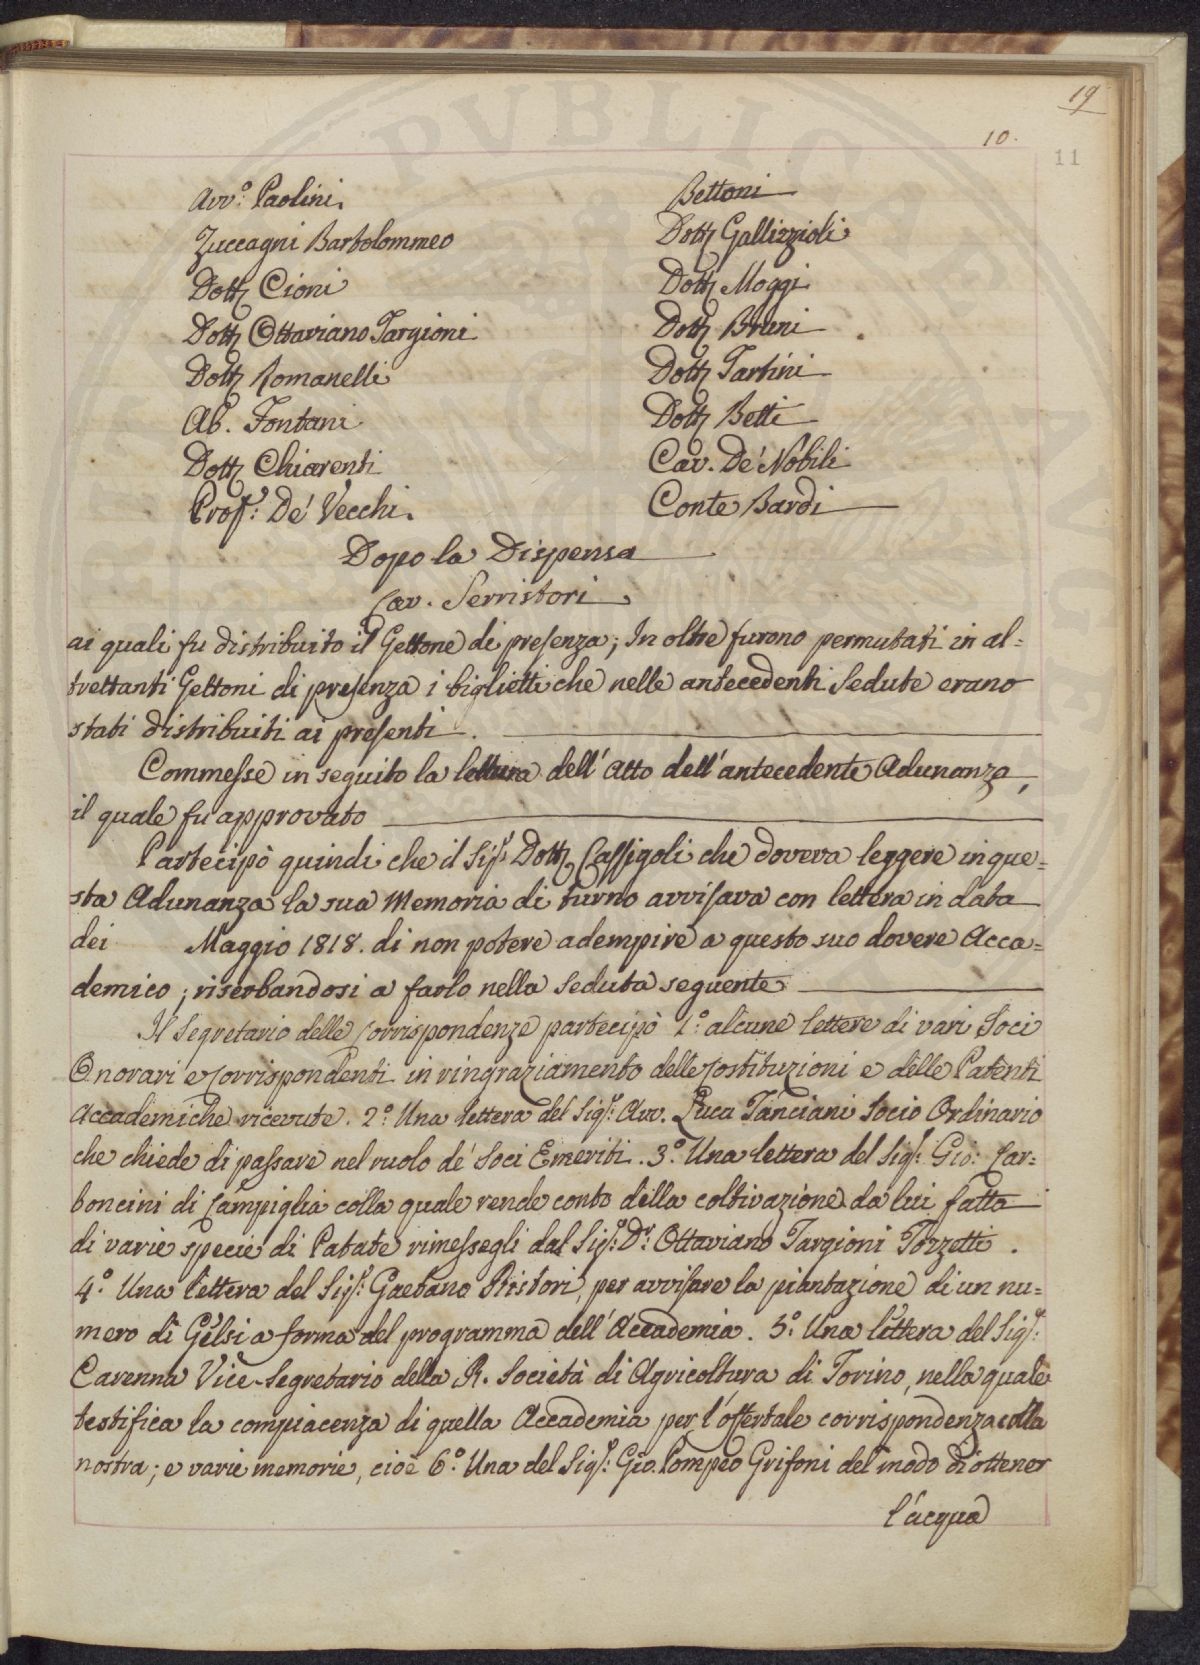 19
10.
11
Avv.º Paolini.
Zuccagni Bartolommeo
Dott. Cioni
Dott. Ottaviano Targioni
Dott. Romanelli
Ab. Fontani
Dott. Chiarenti
Prof.: De' Vecchi.
Bettoni
Dott. Gallizzioli
Dott. Moggi
Dott. Bruni
Dott. Tartini
Dott. Betti
Cav. De' Nobili
Conte Bardi
Dopo la Dispensa
Cav. Serristori
ai quali fu distribuito il Gettone di presenza; In oltre furono permutati in al=
trettanti Gettoni di presenza i biglietti che nelle antecedenti Sedute erano
stati distribuiti ai presenti.
Commesse in seguito la lettura dell' Atto dell' antecedente Adunanza,
il quale fu approvato
Partecipò quindi che il Sig.r Dott. Cassigoli che doveva leggere in que=
sta Adunanza la sua Memoria di turno avvisava con lettera in data
dei Maggio 1818. di non potere adempire a questo suo dovere Acca=
demico; riserbandosi a farlo nella Seduta seguente
Il Segretario delle Corrispondenze partecipò 1.º alcune lettere di vari Soci
Onorari e Corrispondenti in ringraziamento delle Costituzioni e delle Patenti
Accademiche ricevute. 2.º Una lettera del Sig.r Avv. Luca Tanciani Socio Ordinario
che chiede di passare nel ruolo de' Soci Emeriti. 3.º Una lettera del Sig.r Gio: Car=
boncini di Campiglia colla quale rende conto della coltivazione da lui fatta
di varie specie di Patate rimessegli dal Sig.r D.r Ottaviano Targioni Tozzetti.
4.º Una lettera del Sig.r Gaetano Ristori per avvisare la piantazione di un nu=
mero di Gelsi a forma del programma dell' Accademia. 5.º Una lettera del Sig.r
Cavenna Vice-Segretario della R. Società di Agricoltura di Torino, nella quale
testifica la compiacenza di quella Accademia per l'offertale corrispondenza colla
nostra; e varie memorie, cioè 6.º Una del Sig.r Gio. Pompeo Grifoni del modo di ottener
l'acqua